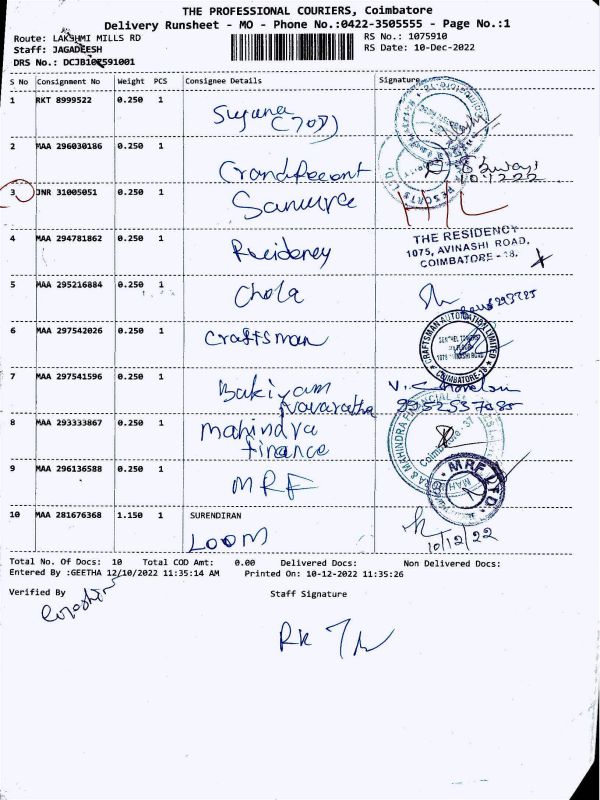 THE PROFESSIONAL COURIERS, Coimbatore
Delivery Runsheet - MO - Phone No.:0422-3505555 - Page No.:1
Route: LAKSHMI MILLS RD
RS No.: 1075910
Staff: JAGADEESH
RS Date: 10-Dec-2022
DRS No.: DCJB107591001
S No Consignment No Weight PCS Consignee Details Signature
1 RKT 8999522 0.250 1
Suguna
2 MAA 296030186 0.250 1
Grand Regent
3 JNR 31005051 0.250 1
4 MAA 294781862 0.250 1
Residency
THE RESIDENCY
1075, AVINASHI ROAD,
COIMBATORE - 18.
5 MAA 295216884 0.250 1
Chola
6 MAA 297542026 0.250 1
Craftsman
CRAFTSMAN AUTOMATION LIMITED
COIMBATORE-18
7 MAA 297541596 0.250 1
Bakiyam
Navaratha
9952537085
8 MAA 293333867 0.250 1
Mahindra
finance
Coimbatore-37
9 MAA 296136588 0.250 1
MRF
MRF LTD.
10 MAA 281676368 1.150 1 SURENDIRAN
LOOM
10/12/22
Total No. Of Docs: 10 Total COD Amt: 0.00 Delivered Docs: Non Delivered Docs:
Entered By :GEETHA 12/10/2022 11:35:14 AM Printed On: 10-12-2022 11:35:26
Verified By
Staff Signature